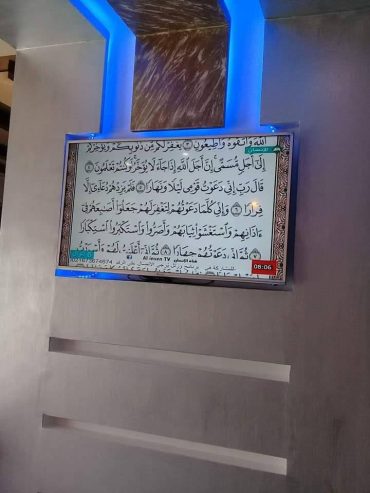 ٱللَّهَ وَٱتَّقُوهُ وَأَطِيعُونِ ٣ يَغْفِرْ لَكُم مِّن ذُنُوبِكُمْ وَيُؤَخِّرْكُمْ
إِلَىٰٓ أَجَلٍ مُّسَمًّى إِنَّ أَجَلَ ٱللَّهِ إِذَا جَآءَ لَا يُؤَخَّرُ لَوْ كُنتُمْ تَعْلَمُونَ ٤
قَالَ رَبِّ إِنِّى دَعَوْتُ قَوْمِى لَيْلًا وَنَهَارًا ٥ فَلَمْ يَزِدْهُمْ دُعَآءِىٓ إِلَّا
فِرَارًا ٦ وَإِنِّى كُلَّمَا دَعَوْتُهُمْ لِتَغْفِرَ لَهُمْ جَعَلُوٓا۟ أَصَٰبِعَهُمْ فِىٓ
ءَاذَانِهِمْ وَٱسْتَغْشَوْا۟ ثِيَابَهُمْ وَأَصَرُّوا۟ وَٱسْتَكْبَرُوا۟ ٱسْتِكْبَارًا
٧ ثُمَّ إِنِّى دَعَوْتُهُمْ جِهَارًا ٨ ثُمَّ إِنِّىٓ أَعْلَنتُ لَهُمْ وَأَسْرَرْتُ
Al insen TV قناة الإنسان
06:06